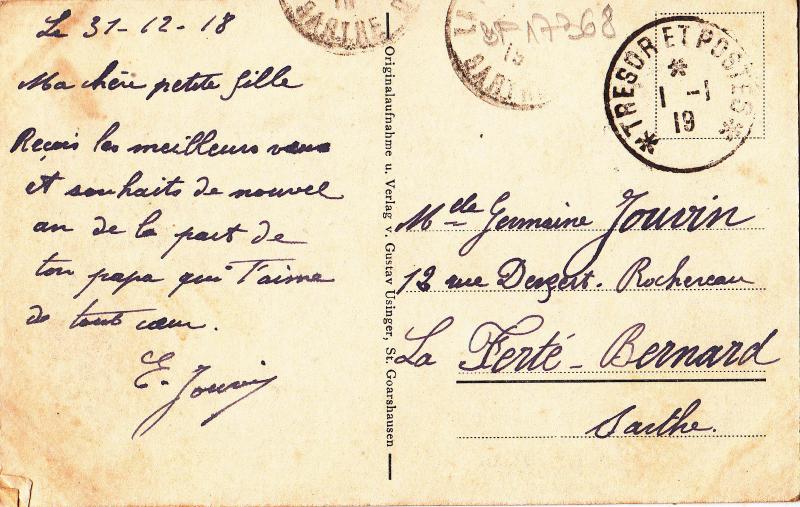 Le 31-12-18
Ma chère petite fille
Reçois les meilleurs vœux
et souhaits de nouvel
an de la part de
ton papa qui T'aime
de tout cœur.
E. Jouvin
Originalaufnahme u. Verlag v. Gustav Usinger, St. Goarshausen
SARTHE
3F17368
19
SARTHE
*TRESOR ET POSTES*
*
1 -1
19
Mdlle Germaine Jouvin
12 rue Denfert-Rochereau
La Ferté-Bernard
Sarthe.